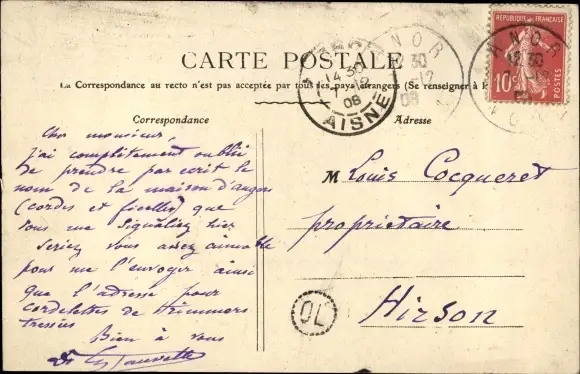 CARTE POSTALE
La Correspondance au recto n'est pas acceptée par tous les pays étrangers (Se renseigner à la
Correspondance
Adresse
RÉPUBLIQUE FRANÇAISE
10c
POSTES
ANOR
14 30
12
08
AISNE
ANOR
30
12
08
OL
Cher monsieur,
j'ai complètement oublié
de prendre par ecrit le
nom de la maison d'angers
(cordes et ficelles) que
vous me signaliez hier
Seriez vous assez aimable
pour me l'envoyer ainsi
que l'adresse pour
cordelettes de
tressées
Bien à vous
M Louis Cocqueret
propriétaire
Hirson